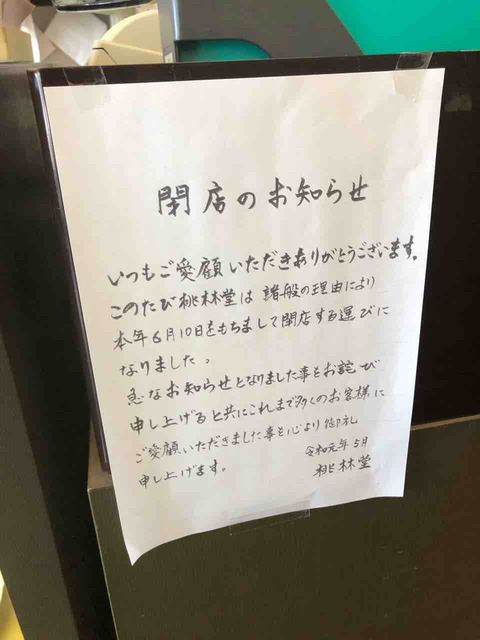 閉店のお知らせ
いつもご愛顧いただきありがとうございます。
このたび桃林堂は諸般の理由により
本年6月10日をもちまして閉店する運びに
なりました。
急なお知らせとなりました事をお詫び
申し上げると共にこれまで多くのお客様に
ご愛顧いただきました事を心より御礼
申し上げます。
令和元年5月
桃林堂